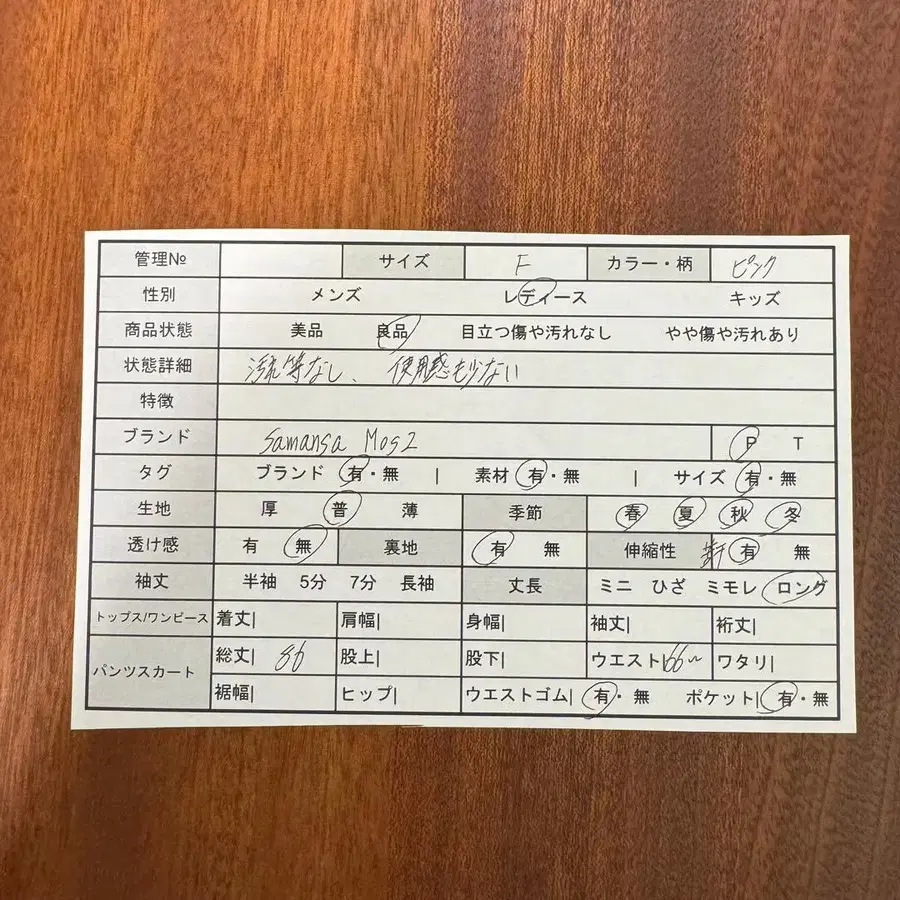 管理№ サイズ F カラー・柄 ピンク
性別 メンズ レディース キッズ
商品状態 美品 良品 目立つ傷や汚れなし やや傷や汚れあり
状態詳細 汚れ等なし、使用感も少ない
特徴
ブランド Samansa Mos2 P T
タグ ブランド 有・無 | 素材 有・無 | サイズ 有・無
生地 厚 普 薄 季節 春 夏 秋 冬
透け感 有 無 裏地 有 無 伸縮性 有 無
袖丈 半袖 5分 7分 長袖 丈長 ミニ ひざ ミモレ ロング
トップス/ワンピース 着丈| 肩幅| 身幅| 袖丈| 裄丈|
パンツスカート 総丈| 86 股上| 股下| ウエスト 66~ ワタリ|
裾幅| ヒップ| ウエストゴム| 有・無 ポケット| 有・無